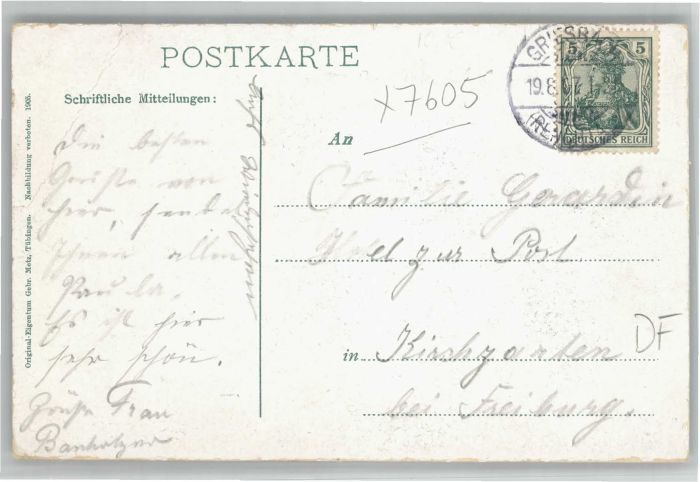 POSTKARTE
Schriftliche Mitteilungen:
Die besten
Grüsse von
hier, sendet
Ihnen allen
Paula.
Es ist hier
sehr schön.
Grüße Frau
Banholzer
Original-Eigentum Gebr. Metz, Tübingen. Nachbildung verboten. 1905.
x7605
An
Familie Gerardin
Hotel zur Post.
in Kirchzarten
bei Freiburg.
DF
GRIESBA
19.8.07
5 5
DEUTSCHES REICH